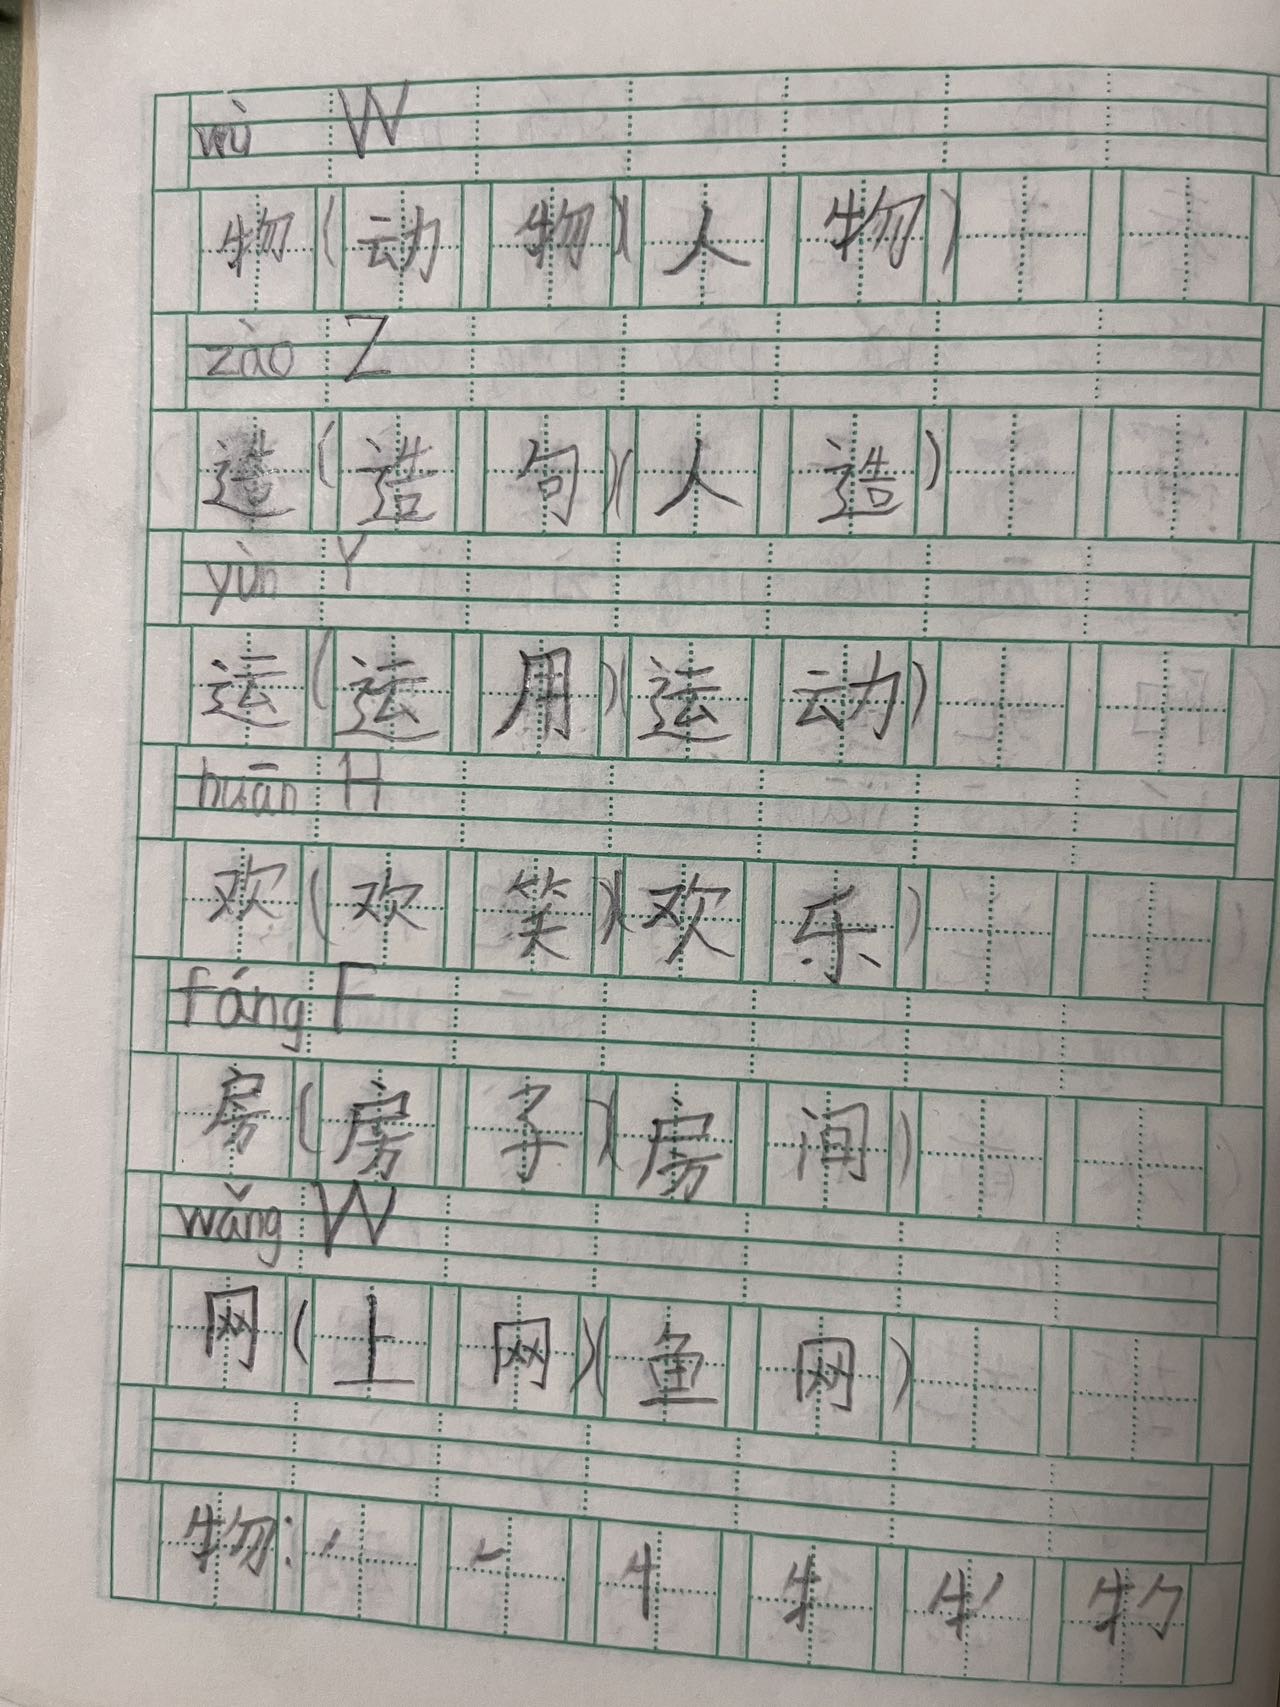 wù W
物(动物)(人物)
zào Z
造(造句)(人造)
yùn Y
运(运用)(运动)
huān H
欢(欢笑)(欢乐)
fáng F
房(房子)(房间)
wǎng W
网(上网)(鱼网)
物: